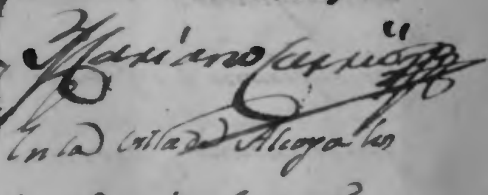 Mariano Carrion
En la Villa de Alcoya los